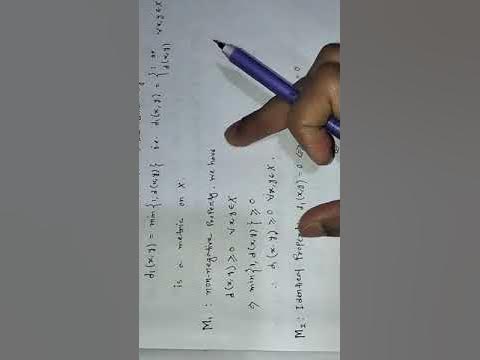 d₁(x,y) = min{1,d(x,y)} i.e. d₁(x,y) = { 1 or d(x,y) ∀x,y∈X
is a metric on X.
M₁ : non-negative Property. we have
d(x,y) ≥ 0 ∀x,y∈X
⇒ min{1,d(x,y)} ≥ 0
∴ d₁(x,y) ≥ 0 ∀x,y∈X.
M₂ : Identical Property d₁(x,y) = 0 ⇔ = 0